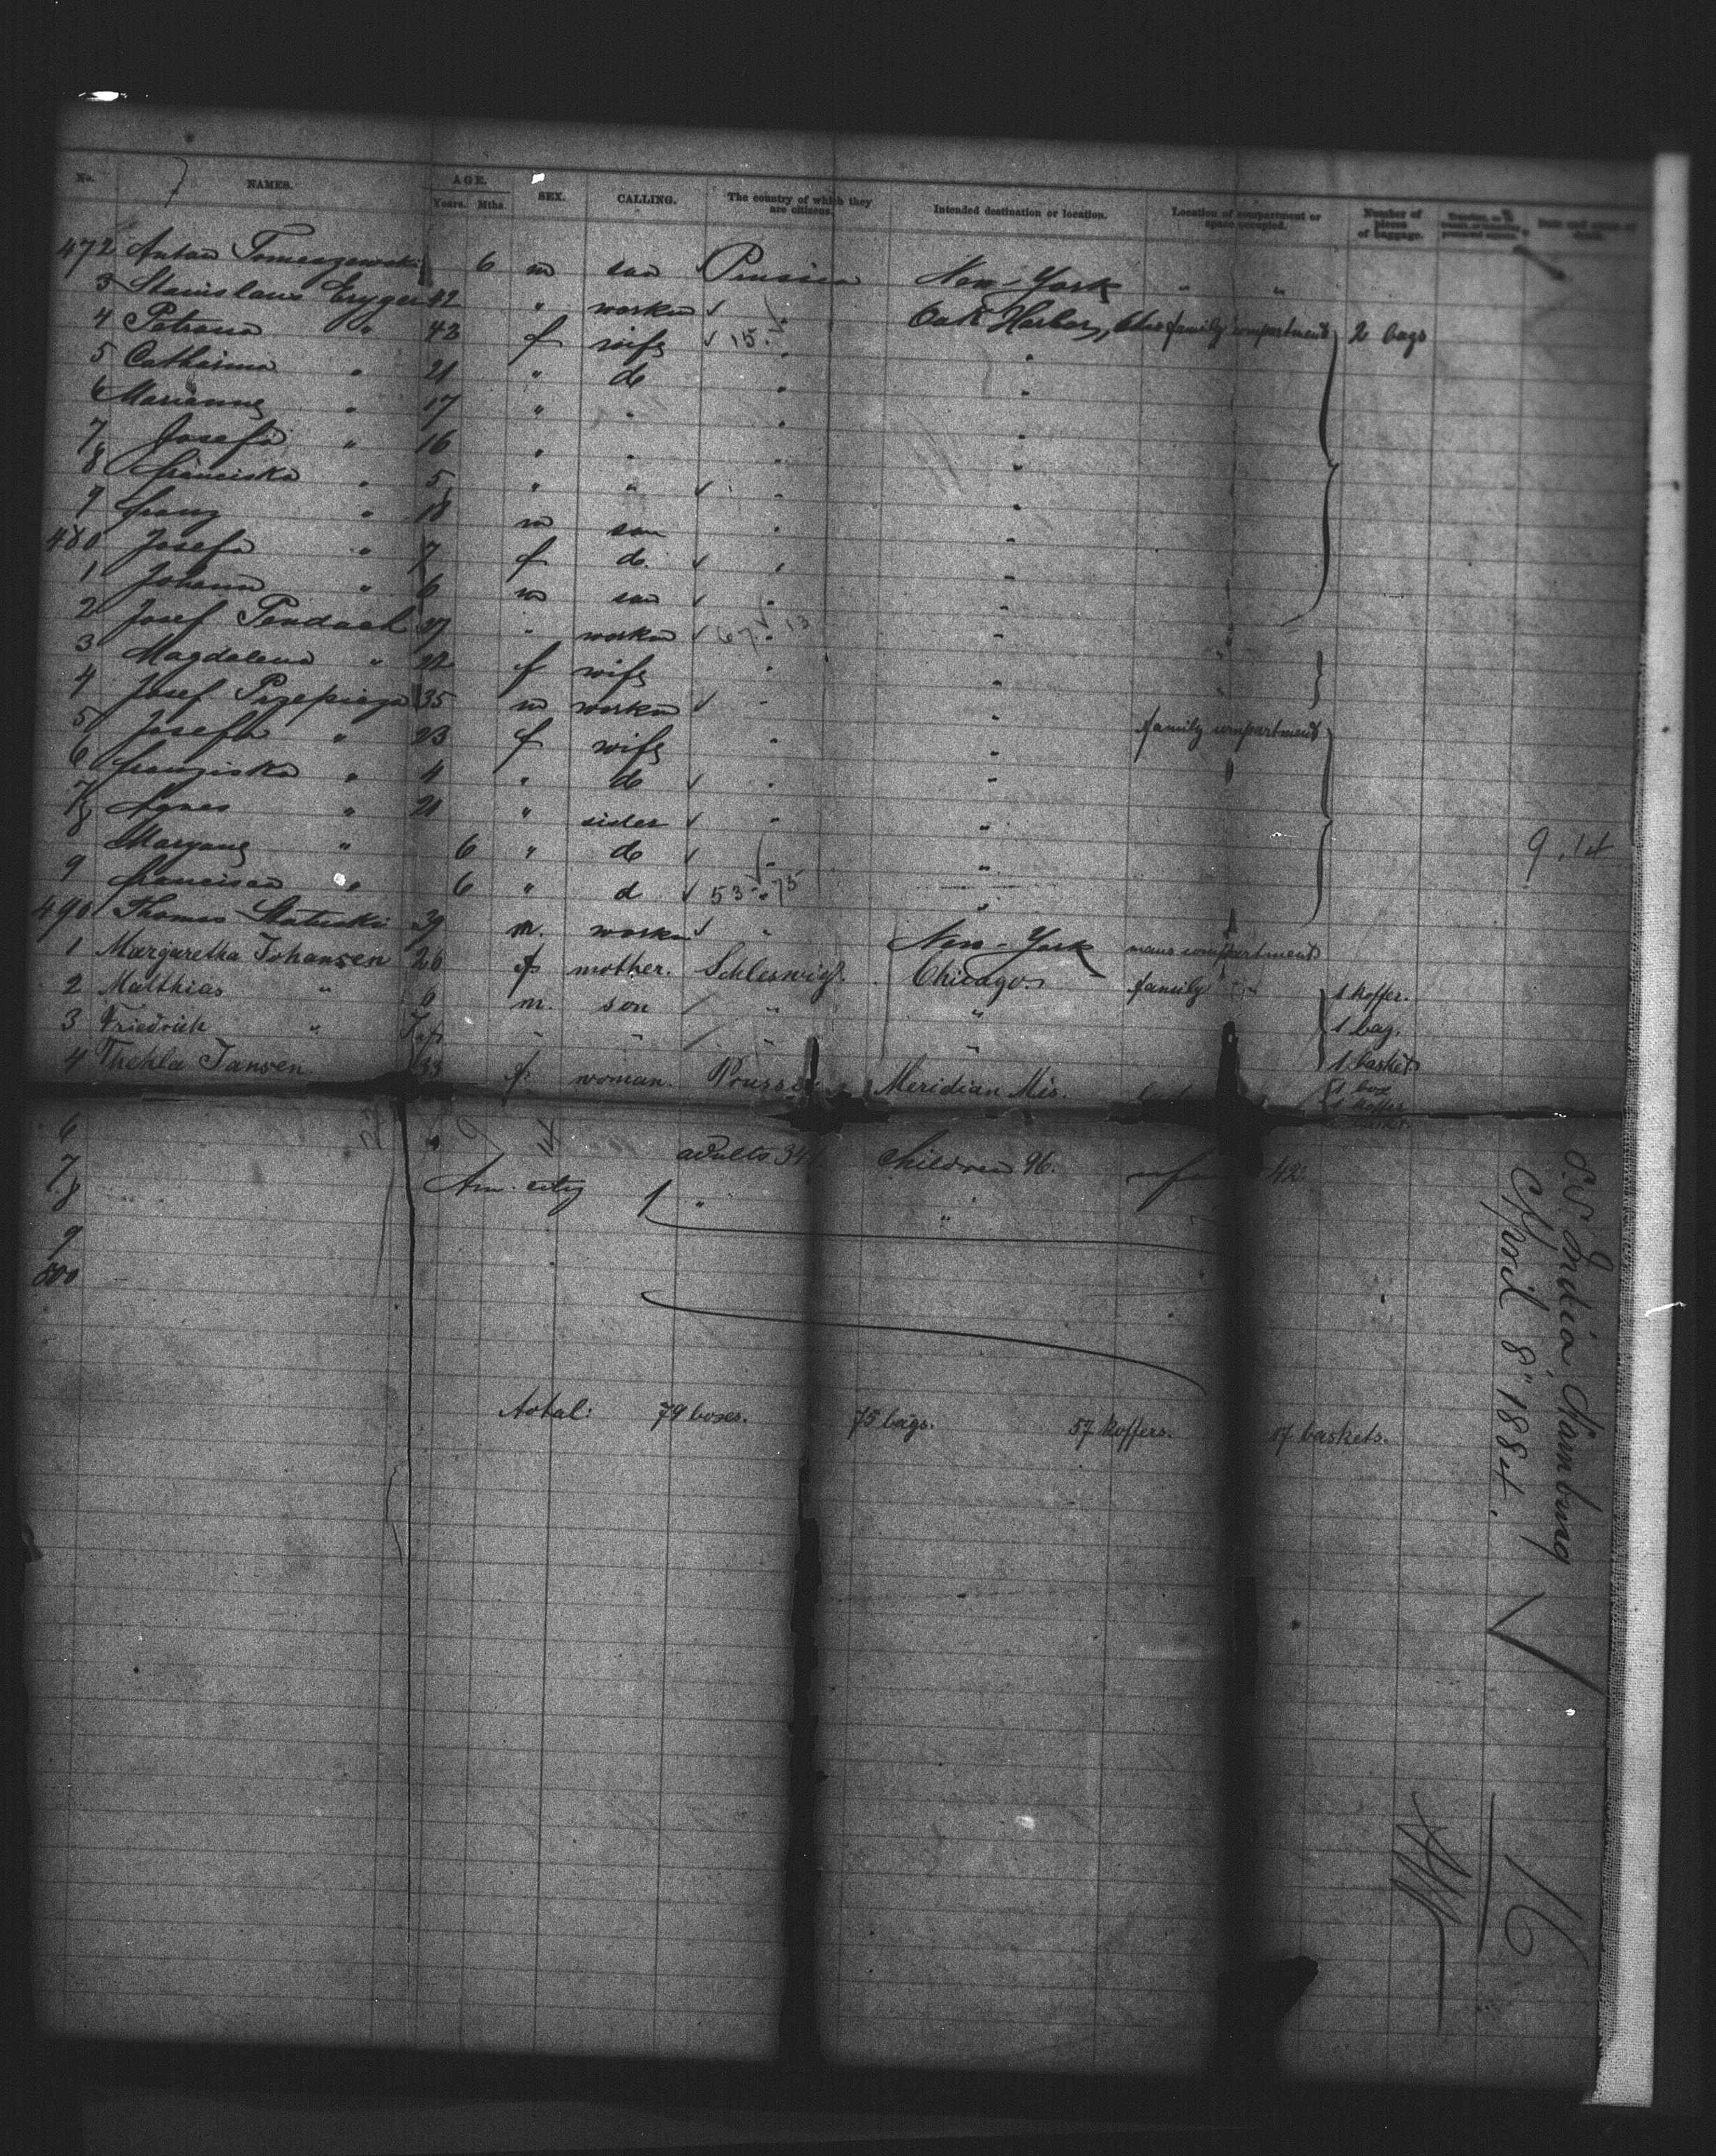 No. NAMES. AGE. Years. Mths. SEX. CALLING. The country of which they are citizens. Intended destination or location. Location of compartment or space occupied. Number of pieces of baggage.
472 Anton Tomeszewski 6 m son Prussia New-York " "
3 Stanislaus Eryger 42 " worker " Oak Harbor, family compartment 2 bags
4 Petrona " 42 f wife 15. " "
5 Catharina " 21 " do " "
6 Marianne " 17 " " " "
7 Josefa " 16 " " " "
8 Franciska " 5 " " " "
9 Franz " 18 m son " "
480 Josefa " 7 f do. " "
1 Johann " 6 m son " "
2 Josef Pendach 27 " worker 67. 13 " "
3 Magdalena " 22 f wife " " "
4 Josef Pizepiega 35 m worker " " "
5 Josefa " 23 f wife " " family compartment
6 Franziska " 4 " do " " "
7 Agnes " 21 " sister " "
8 Maryane " 6 " do " "
9 Francisca " 6 " d 53 - 75 "
490 Thomas 39 m. worker " New-York mans compartment
1 Margaretha Johansen 26 f. mother. Schleswig. Chicago. family " 1 koffer.
2 Matthias " 9 m. son " " 1 bag.
3 Friedrich " " " " " 1 basket
4 Thekla Jansen 33 f. woman. Meridian Mis. 1 box
1 koffer
6 " adults 34 Children 96. 42.
7
8 Am. city 1 " "
9
500
total: 79 boxes. 75 bags. 57 koffers. 17 baskets.
S.S. India, Hamburg
April 8" 1884.
16